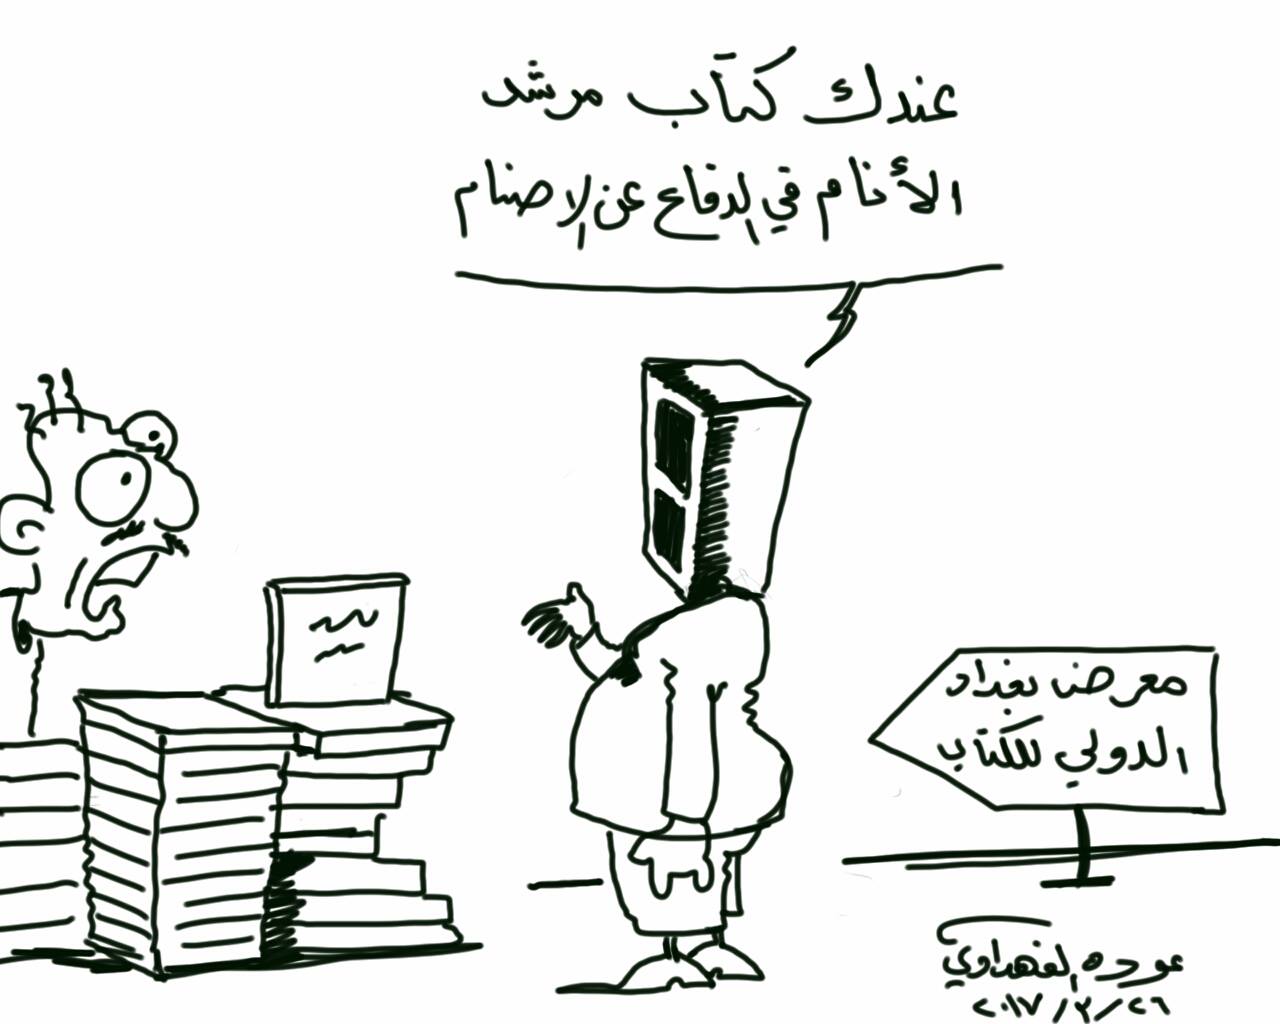 عندك كتاب مرشد
الأنام في الدفاع عن الاصنام
معرض بغداد
الدولي للكتاب
عوده الفهداوي
٢٠١٧/٣/٢٦